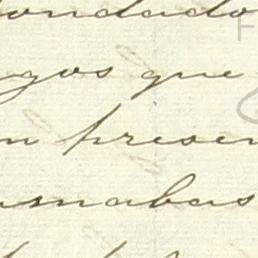 ondado
gos que
n presen
mabas